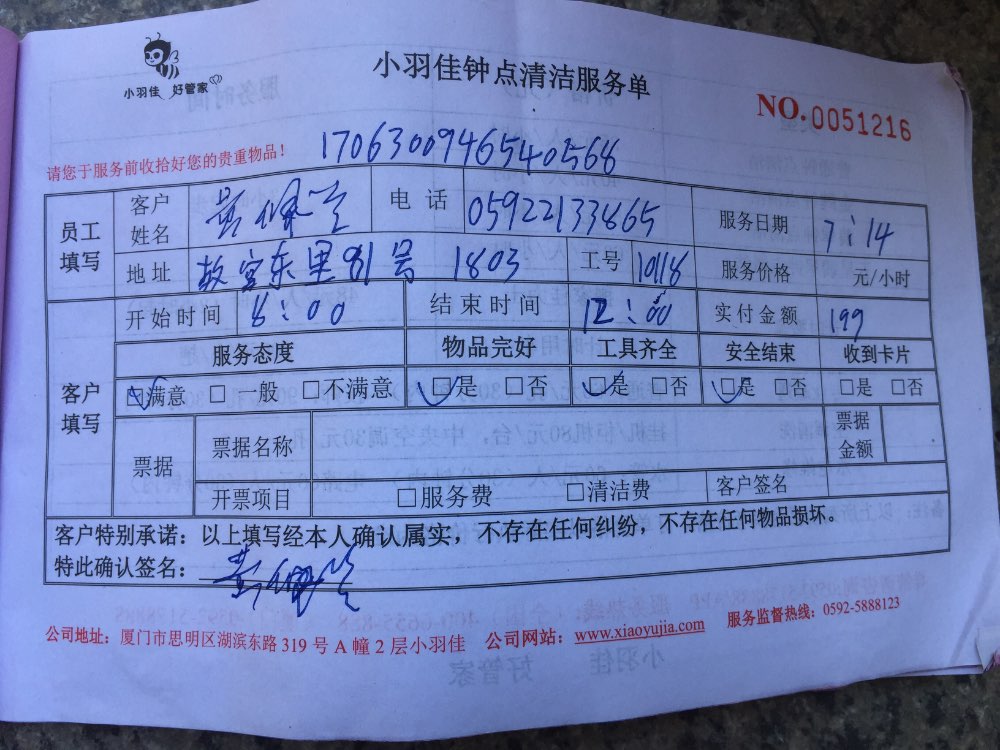 小羽佳 好管家
小羽佳钟点清洁服务单
NO.0051216
请您于服务前收拾好您的贵重物品！
1706300946540568
员工填写 客户姓名 黄 电话 05922133865 服务日期 7:14
地址 故宫东里81号 1803 工号 10118 服务价格 元/小时
开始时间 8:00 结束时间 12:00 实付金额 199
客户填写 服务态度 物品完好 工具齐全 安全结束 收到卡片
☑满意 □一般 □不满意 ☑是 □否 ☑是 □否 ☑是 □否 □是 □否
票据 票据名称 票据金额
开票项目 □服务费 □清洁费 客户签名
客户特别承诺：以上填写经本人确认属实，不存在任何纠纷，不存在任何物品损坏。
特此确认签名：黄
公司地址：厦门市思明区湖滨东路319号A幢2层小羽佳 公司网站：www.xiaoyujia.com 服务监督热线：0592-5888123